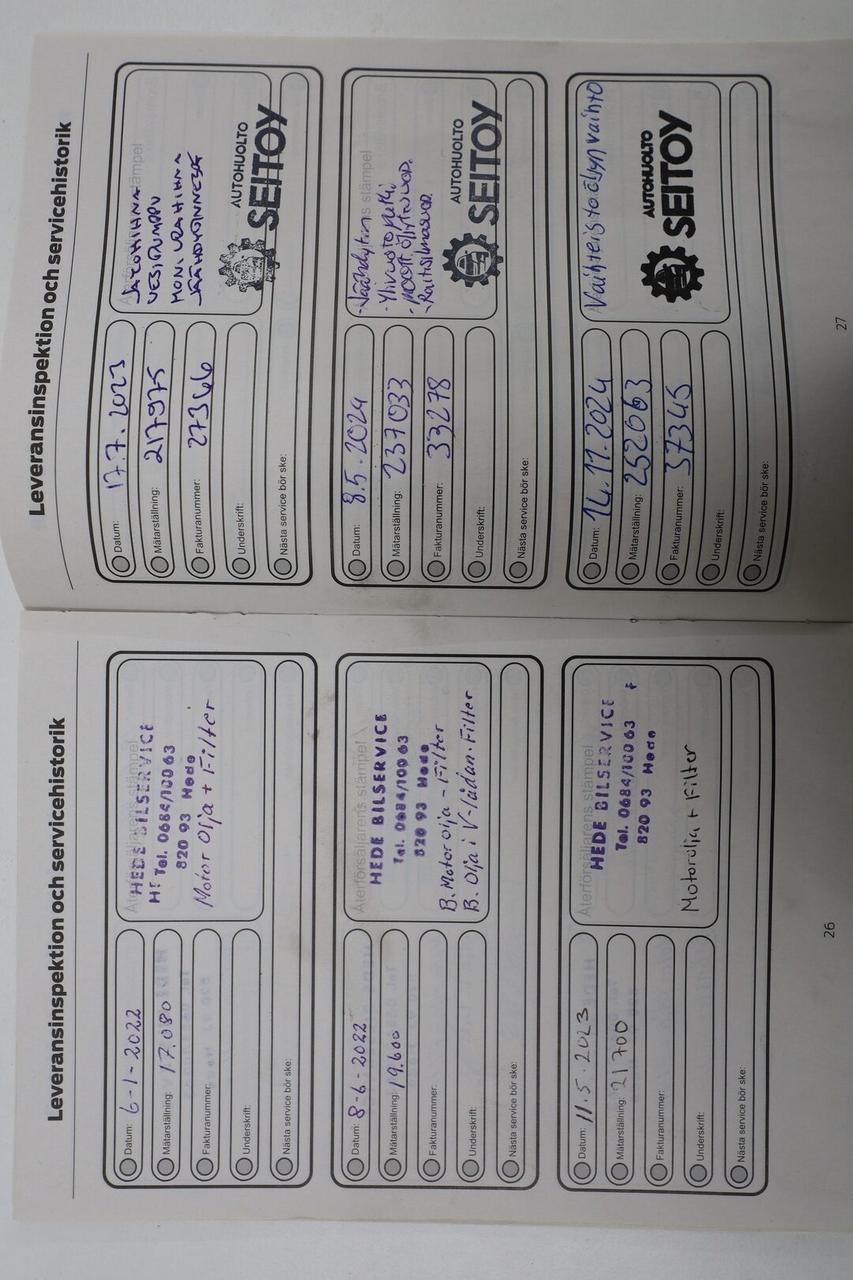 Leveransinspektion och servicehistorik
Datum: 6-1-2022
Mätarställning: 17.080
Fakturanummer:
Underskrift:
Nästa service bör ske:
Återförsäljarens stämpel
HEDE BILSERVICE
Tel. 0684/10063
820 93 Hede
Motor olja + Filter
Datum: 8-6-2022
Mätarställning: 19.600
Fakturanummer:
Underskrift:
Nästa service bör ske:
Återförsäljarens stämpel
HEDE BILSERVICE
Tel. 0684/10063
820 93 Hede
B. Motor olja - Filter
B. Olja i V-lådan. Filter
Datum: 11.5.2023
Mätarställning: 21700
Fakturanummer:
Underskrift:
Nästa service bör ske:
Återförsäljarens stämpel
HEDE BILSERVICE
Tel. 0684/10063
820 93 Hede
Motorolja + Filter
26
Leveransinspektion och servicehistorik
Datum: 17.7.2023
Mätarställning: 217975
Fakturanummer: 27366
Underskrift:
Nästa service bör ske:
JAKOHIHNA
VESIPUMPPU
MONIURAHIHNA
JÄÄHDYTINNESTE
AUTOHUOLTO
SEITOY
Datum: 8.5.2024
Mätarställning: 237033
Fakturanummer: 33278
Underskrift:
Nästa service bör ske:
-Jäähdytin
-Ylivuotoputki
AUTOHUOLTO
SEITOY
Datum: 14.11.2024
Mätarställning: 252063
Fakturanummer: 37345
Underskrift:
Nästa service bör ske:
Vaihteisto öljyn vaihto
AUTOHUOLTO
SEITOY
27